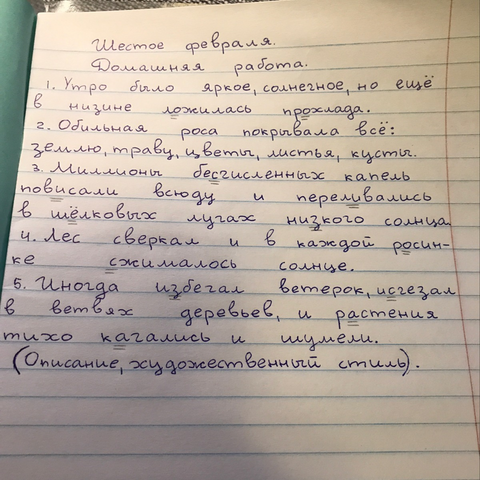 Шестое февраля.
Домашняя работа.
1. Утро было яркое, солнечное, но ещё
в низине ложилась прохлада.
2. Обильная роса покрывала всё:
землю, траву, цветы, листья, кусты.
3. Миллионы бесчисленных капель
повисали всюду и переливались
в шёлковых лугах низкого солнца.
4. Лес сверкал и в каждой росин-
ке сжималось солнце.
5. Иногда избегал ветерок, исчезал
в ветвях деревьев, и растения
тихо качались и шумели.
(Описание, художественный стиль).